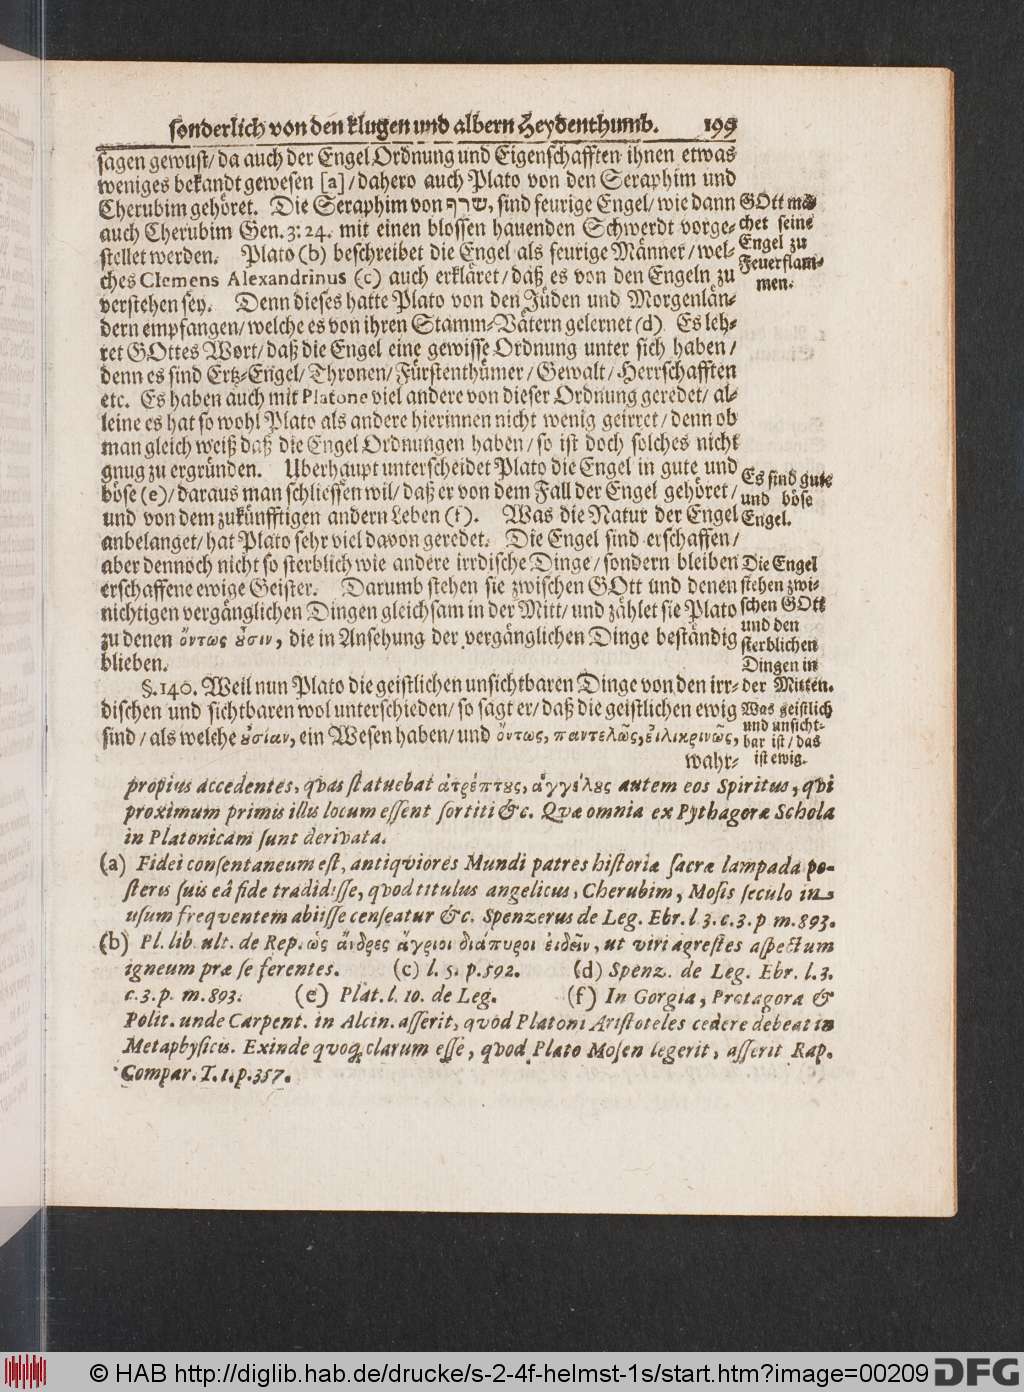 sonderlich von den klugen und albern Heydenthumb. 199
sagen gewust/ da auch der Engel Ordnung und Eigenschafften ihnen etwas
weniges bekandt gewesen [a]/ dahero auch Plato von den Seraphim und
Cherubim gehöret. Die Seraphim von שרף, sind feurige Engel/ wie dann
auch Cherubim Gen. 3: 24. mit einen blossen hauenden Schwerdt vorge-
stellet werden. Plato (b) beschreibet die Engel als feurige Männer/ wel-
ches Clemens Alexandrinus (c) auch erkläret/ daß es von den Engeln zu
verstehen sey. Denn dieses hatte Plato von den Jüden und Morgenlän-
dern empfangen/ welche es von ihren Stamm-Vätern gelernet (d) Es leh-
ret GOttes Wort/ daß die Engel eine gewisse Ordnung unter sich haben/
denn es sind Ertz-Engel/ Thronen/ Fürstenthümer/ Gewalt/ Herrschafften
etc. Es haben auch mit Platone viel andere von dieser Ordnung geredet/ al-
leine es hat so wohl Plato als andere hierinnen nicht wenig geirret/ denn ob
man gleich weiß daß die Engel Ordnungen haben/ so ist doch solches nicht
gnug zu ergründen. Uberhaupt unterscheidet Plato die Engel in gute und
böse (e)/ daraus man schliessen wil/ daß er von dem Fall der Engel gehöret/
und von dem zukünfftigen andern Leben (f). Was die Natur der Engel
anbelanget/ hat Plato sehr viel davon geredet. Die Engel sind erschaffen/
aber dennoch nicht so sterblich wie andere irrdische Dinge/ sondern bleiben
erschaffene ewige Geister. Darumb stehen sie zwischen GOtt und denen
nichtigen vergänglichen Dingen gleichsam in der Mitt/ und zählet sie Plato
zu denen ὄντως ȣ̓σιν, die in Ansehung der vergänglichen Dinge beständig
blieben.
§. 140. Weil nun Plato die geistlichen unsichtbaren Dinge von den irr-
dischen und sichtbaren wol unterschieden/ so sagt er/ daß die geistlichen ewig
sind/ als welche ȣ̓σίαν, ein Wesen haben/ und ὄντως, παντελῶς, εἰλικρινῶς,
wahr-
GOtt ma
chet seine
Engel zu
Feuerflam-
men.
Es sind gute
und böse
Engel.
Die Engel
stehen zwi-
schen GOtt
und den
sterblichen
Dingen in
der Mitten.
Was geistlich
und unsicht-
bar ist/ das
ist ewig.
propius accedentes, qvas statuebat ἀτρέπτȣς, ἀγγέλȣς autem eos Spiritus, qvi
proximum primis illis locum essent sortiti &c. Qvæ omnia ex Pythagoræ Schola
in Platonicam sunt derivata.
(a) Fidei consentaneum est, antiqviores Mundi patres historiæ sacræ lampada po-
steris suis eâ fide tradidisse, qvod titulus angelicus, Cherubim, Mosis seculo in
usum freqventem abiisse censeatur &c. Spenzerus de Leg. Ebr. l 3. c. 3. p m. 893.
(b) Pl. lib. ult. de Rep. ὡς ἄνδρες ἄγριοι διάπυροι ἐιδεῖν, ut viri agrestes aspectum
igneum præ se ferentes. (c) l. 5. p. 592. (d) Spenz. de Leg. Ebr. l. 3.
c. 3. p. m. 893. (e) Plat. l. 10. de Leg. (f) In Gorgia, Protagora &
Polit. unde Carpent. in Alcin. asserit, qvod Platoni Aristoteles cedere debeat in
Metaphysicis. Exinde qvoq; clarum esse, qvod Plato Mosen legerit, asserit Rap.
Compar. T. 1. p. 357.
© HAB http://diglib.hab.de/drucke/s-2-4f-helmst-1s/start.htm?image=00209 DFG